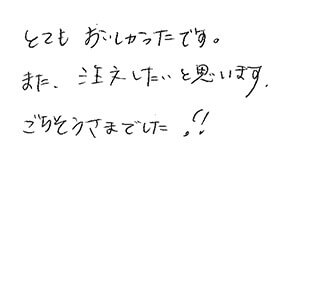 とても おいしかったです。
また、注文したいと思います.
ごちそうさまでした!!